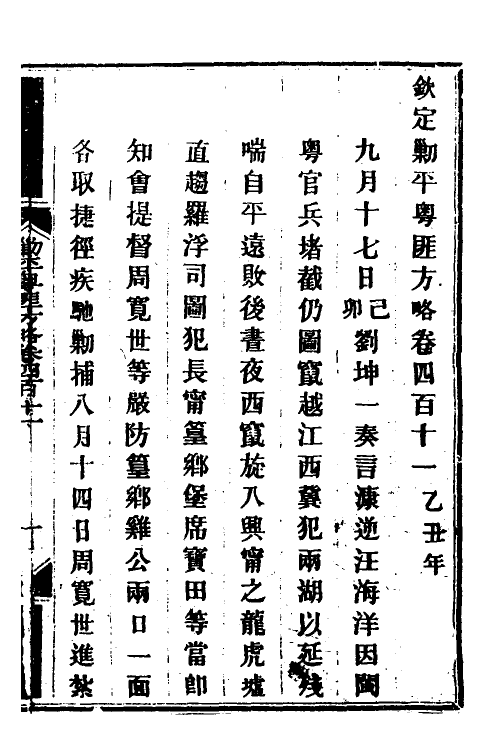 欽定勦平粵匪方略卷四百十一 乙丑年
九月十七日己卯劉坤一奏言康逆汪海洋因閩
粵官兵堵截仍圖竄越江西冀犯兩湖以延殘
喘自平遠敗後晝夜西竄旋入興甯之龍虎墟
直趨羅浮司圖犯長甯篁鄉堡席寶田等當卽
知會提督周寬世等嚴防篁鄉雞公兩口一面
各取捷徑疾馳勦捕八月十四日周寬世進紮
勦平粵匪方略卷四百十一